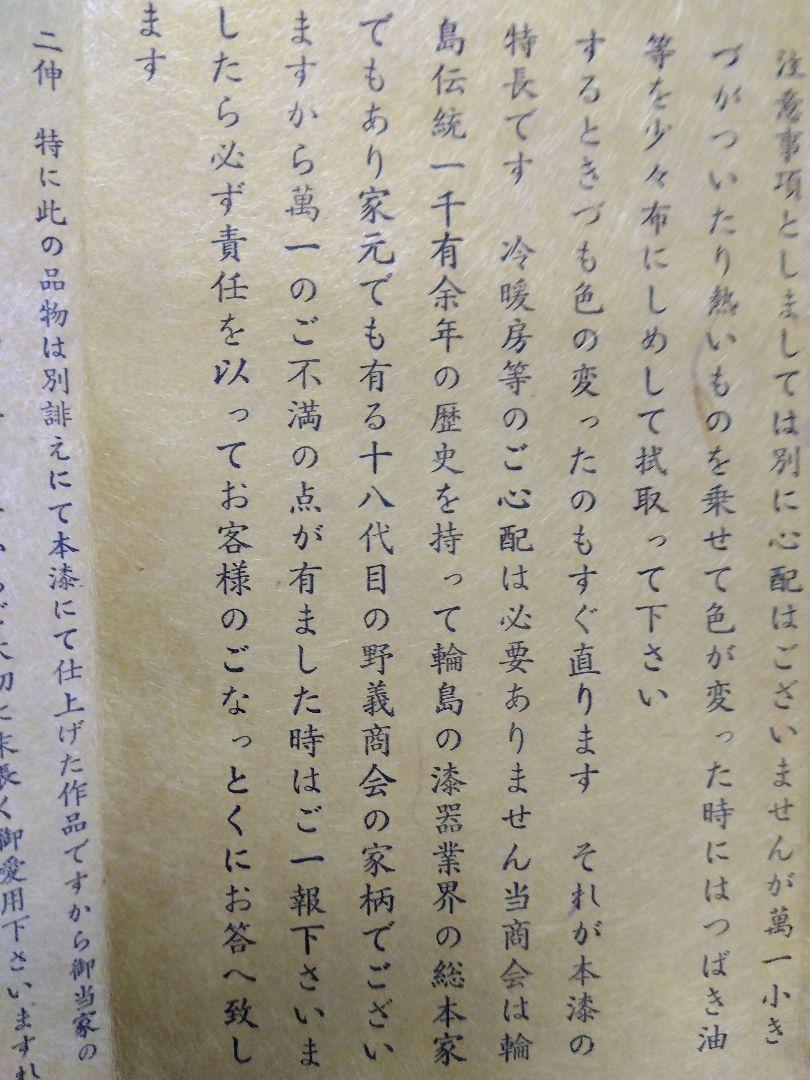 注意事項としましては別に心配はございませんが萬一小き
づがついたり熱いものを乗せて色が変った時にはつばき油
等を少々布にしめして拭取って下さい
するときづも色の変ったのもすぐ直ります　それが本漆の
特長です　冷暖房等のご心配は必要ありません当商会は輪
島伝統一千有余年の歴史を持って輪島の漆器業界の総本家
でもあり家元でも有る十八代目の野義商会の家柄でござい
ますから萬一のご不満の点が有ました時はご一報下さいま
したら必ず責任を以ってお客様のごなっとくにお答へ致し
ます
二伸　特に此の品物は別誹えにて本漆にて仕上げた作品ですから御当家の
大切に末長く御愛用下さいますれ